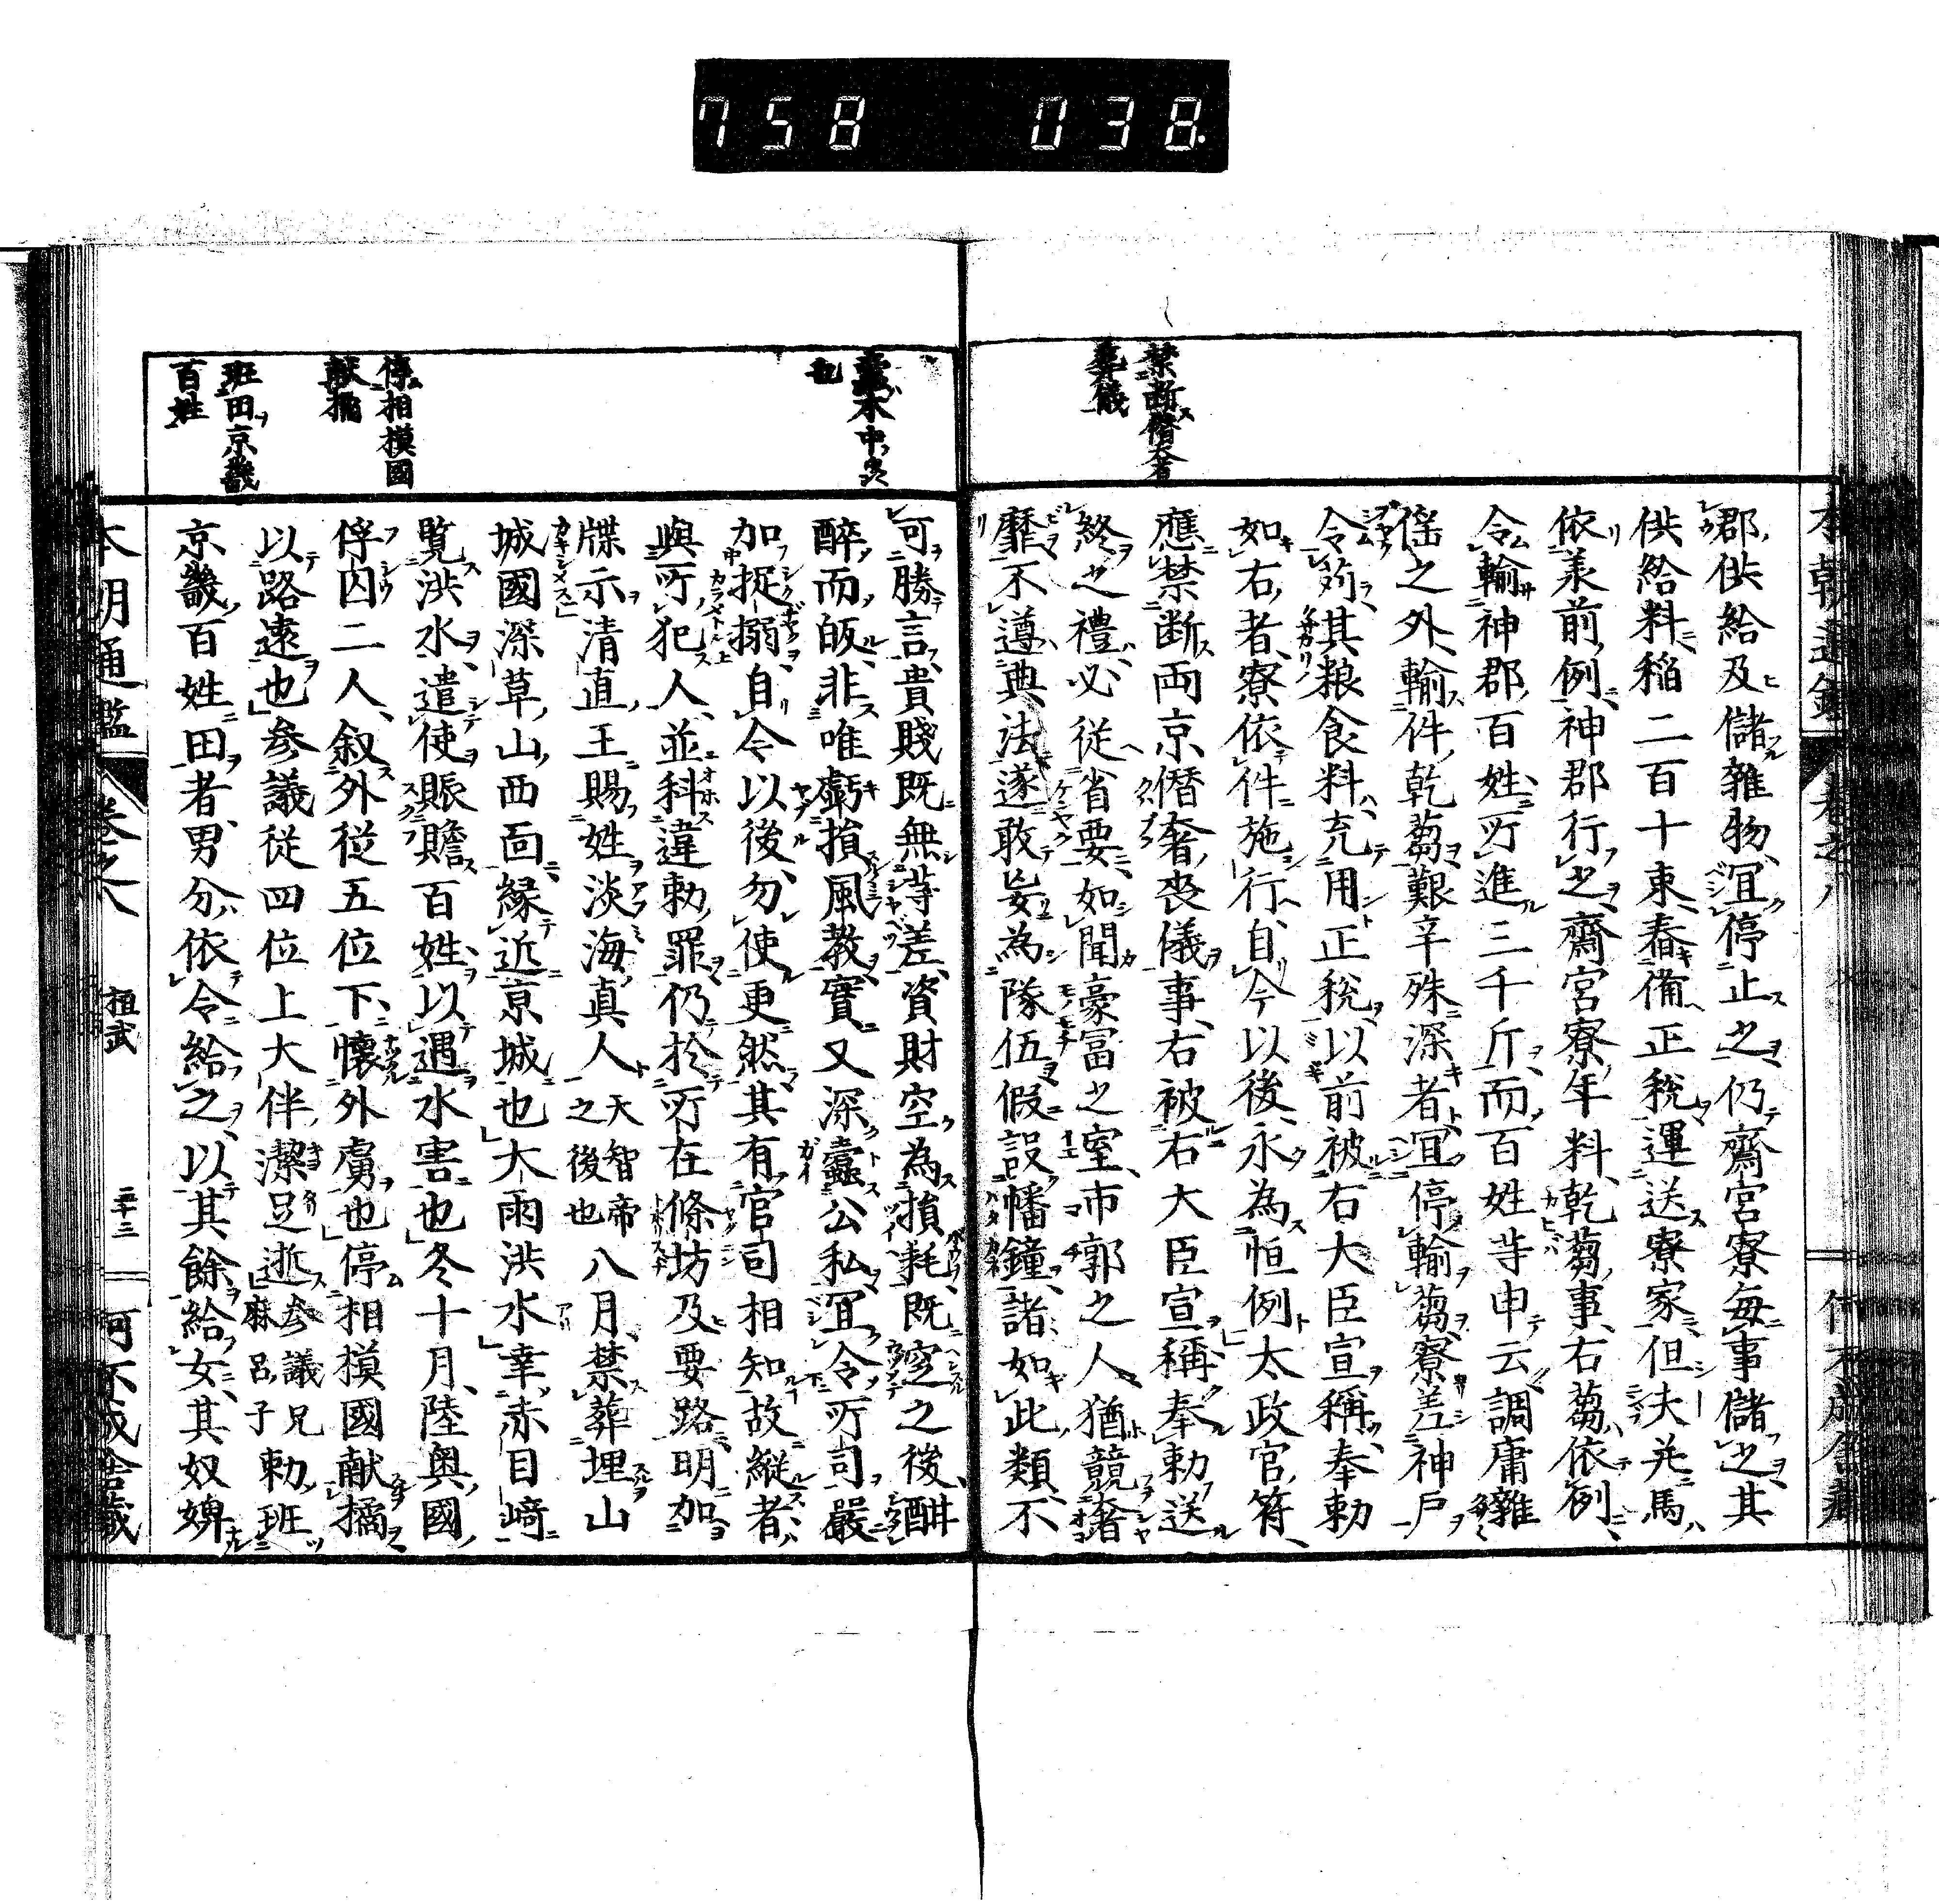 758 038
禁断僭奢
葬儀
郡供給及儲雜物宜停止之仍齋宮寮毎事儲之其
供給料稲二百十束舂備正税運送寮家但夫并馬
依承前例神郡行之齋宮寮年料乾蒭事右蒭依例
令輸神郡百姓所進三千斤而百姓等申云調庸雜
徭之外輸件乾蒭艱辛殊深者宜停輸蒭寮差神戸
令苅其粮食料充用正税以前被右大臣宣稱奉勅
如右者寮依件施行自今以後永為恒例太政官符
應禁断両京僭奢喪儀事右被右大臣宣稱奉勅送
終之禮必從省要如聞豪冨之室市郭之人猶競奢
靡不遵典法遂敢妄為隊伍假設幡鐘諸如此類不
可勝言貴賤既無等差資財空為損耗既窆之後酣
醉而皈非唯虧損風教實又深蠧公私宜令所司嚴
加捉搦自今以後勿使更然其有官司相知故縱者
與所犯人並科違勅罪仍於所在條坊及要路明加
牒示清直王賜姓淡海真人天智帝之後也八月禁葬埋山
城國深草山西面縁近亰城也大雨洪水幸赤目﨑
覧洪水遣使賑贍百姓以遇水害也冬十月陸奥國
俘囚二人叙外從五位下懷外虜也停相模國献橘
以路遠也参議從四位上大伴潔足逝参議兄麻呂子勅班
京畿百姓田者男分依令給之以其餘給女其奴婢
停相模國
献橘
班田京畿
百姓
本朝通鑑 卷之八 桓武 二十三